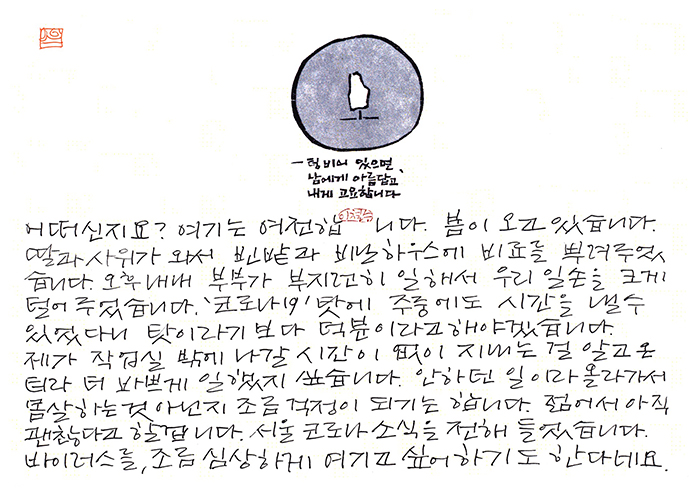 - 텅 비어 있으면,
남에게 아름답고,
내게 고요합니다
이철수
어떠신지요? 여기는 여전합니다. 봄이 오고 있습니다.
딸과 사위가 와서 빈밭과 비닐하우스에 비료를 뿌려주었
습니다. 오후내내 부부가 부지런히 일해서 우리 일손을 크게
덜어 주었습니다. '코로나19' 탓에 주중에도 시간을 낼 수
있었다니 탓이라기 보다 덕분이라고 해야겠습니다.
제가 작업실 밖에 나갈 시간이 없이 지내는 걸 알고 온
터라 더 바쁘게 일했지 싶습니다. 안하던 일이라 올라가서
몸살하는것 아닌지 조금 걱정이 되기는 합니다. 젊어서 아직
괜찮다고 할겁니다. 서울 코로나 소식을 전해 들었습니다.
바이러스를, 조금 심상하게 여기고 싶어하기도 한다네요.